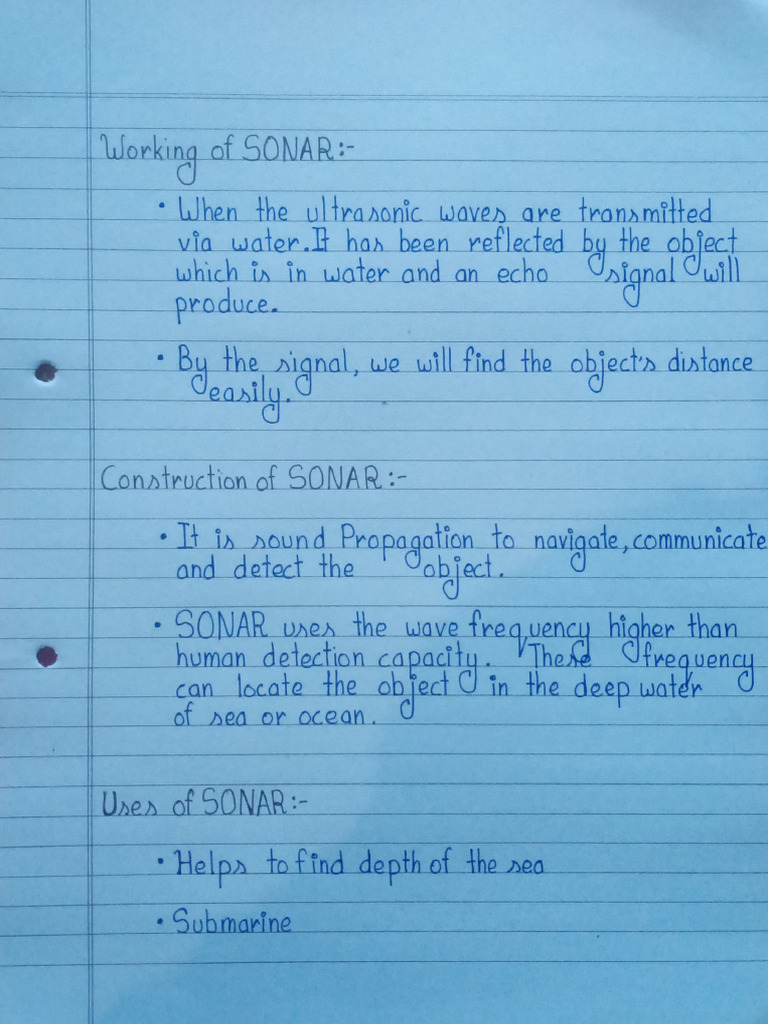 Working of SONAR:-
• When the ultrasonic waves are transmitted
via water. It has been reflected by the object
which is in water and an echo signal will
produce.
• By the signal, we will find the object's distance
easily.
Construction of SONAR:-
• It is sound Propagation to navigate, communicate
and detect the object.
• SONAR uses the wave frequency higher than
human detection capacity. These frequency
can locate the object in the deep water
of sea or ocean.
Uses of SONAR:-
• Helps to find depth of the sea
• Submarine